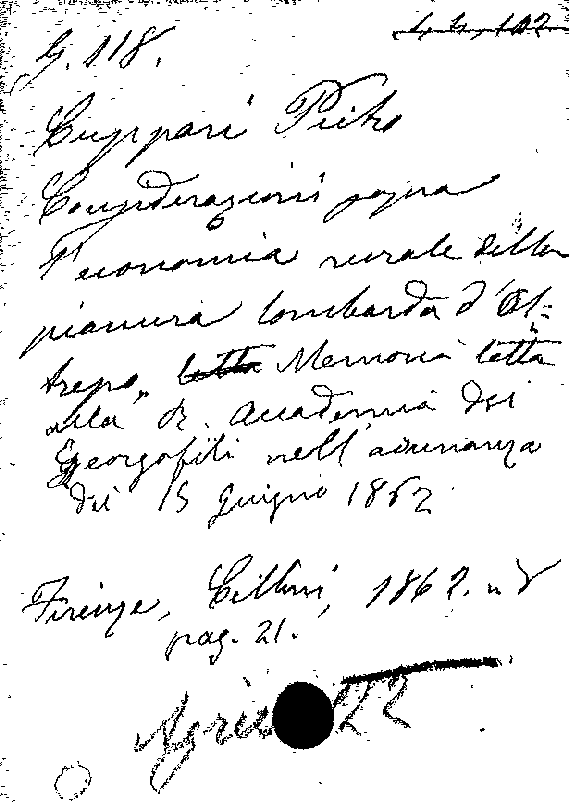 G. 118.
Cuppari Pietro
Considerazioni sopra
l'economia rurale della
pianura lombarda d'Ol=
trepo„ letta Memoria letta
alla R. Accademia dei
Georgofili nell'adunanza
dei 15 Giugno 1862
Firenze, Cellini, 1862. in 8
pag. 21.